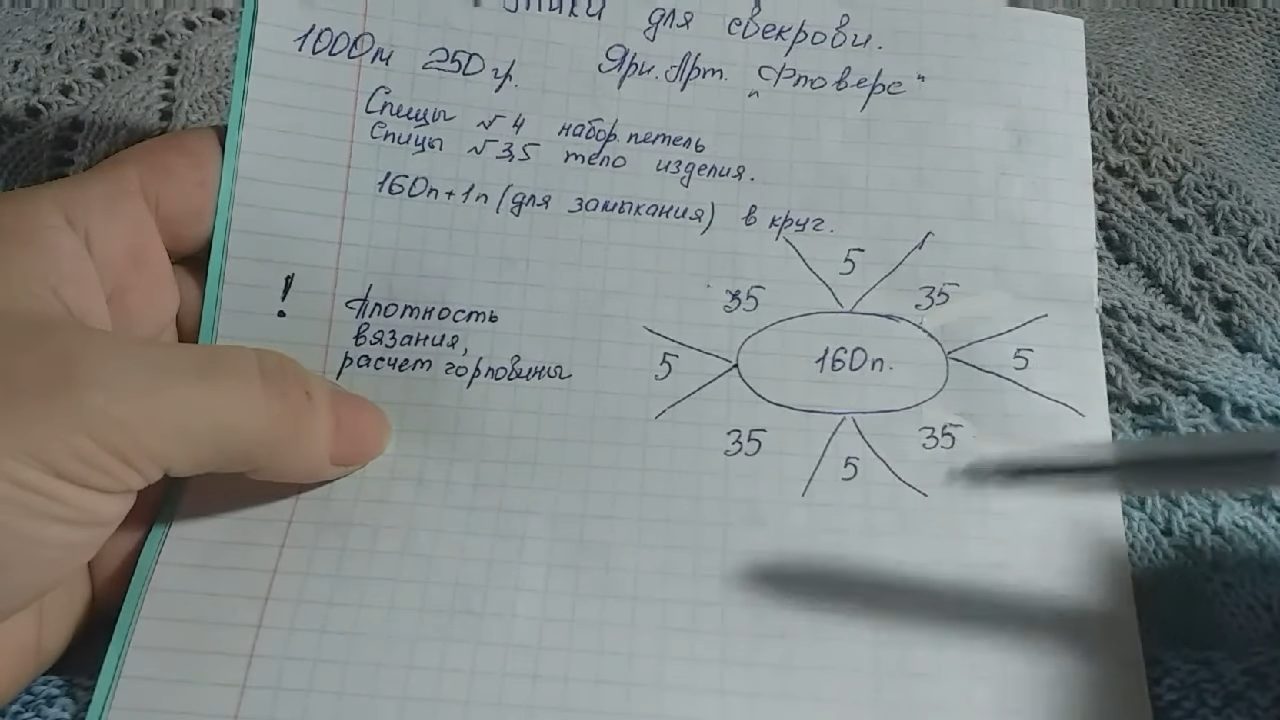 для свекрови.
1000м 250гр. Ярн.Арт. „Фловерс"
Спицы №4 набор.петель
Спицы №3,5 тело изделия.
160п+1п (для замыкания) в круг.
! Плотность
вязания,
расчет горловины
5
35 35
5 160п. 5
35 35
5